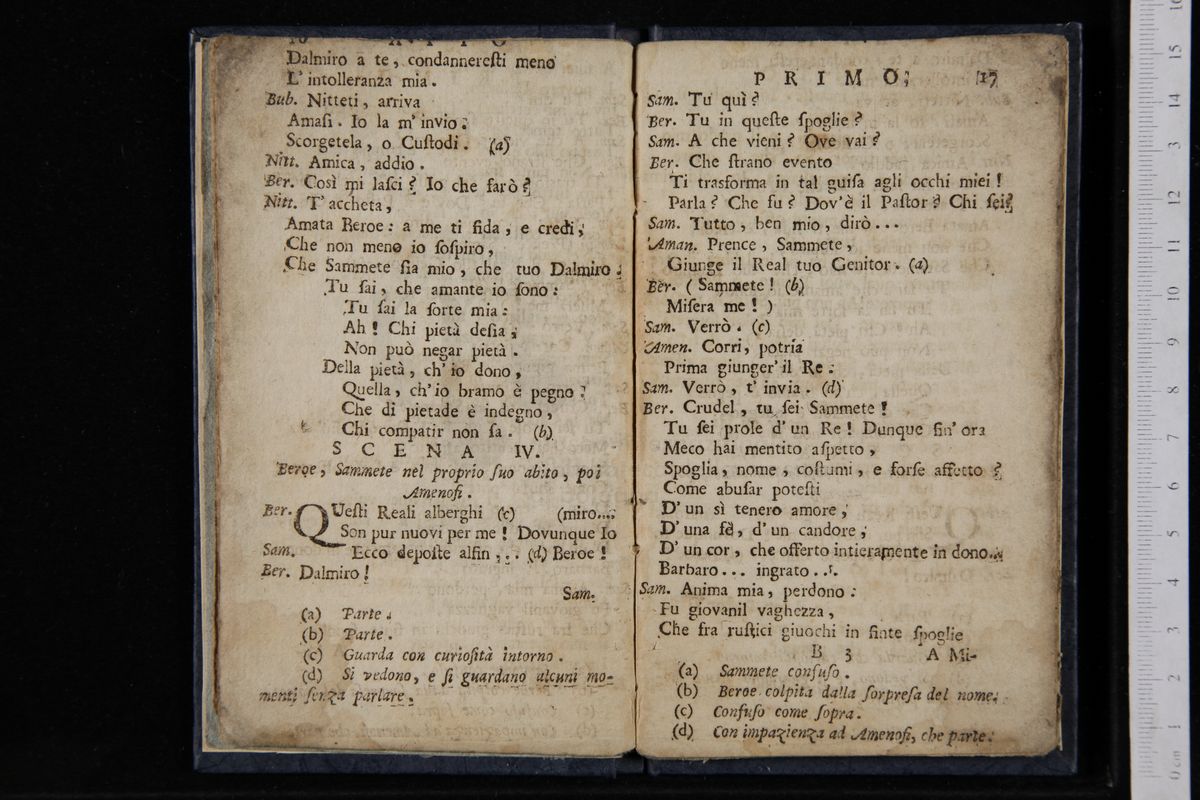 Dalmiro a te, condannereſti meno
L' intolleranza mia.
Bub. Nitteti, arriva
Amaſi. Io la m' invio:
Scorgetela, o Cuſtodi. (a)
Nitt. Amica, addio.
Ber. Così mi laſci? Io che farò?
Nitt. T' accheta,
Amata Beroe: a me ti fida, e credi,
Che non meno io ſoſpiro,
Che Sammete ſia mio, che tuo Dalmiro.
Tu ſai, che amante io ſono:
Tu ſai la ſorte mia:
Ah! Chi pietà deſia,
Non può negar pietà.
Della pietà, ch' io dono,
Quella, ch' io bramo è pegno:
Che di pietade è indegno,
Chi compatir non ſa. (b)
SCENA IV.
Beroe, Sammete nel proprio ſuo abito, poi
Amenofi.
Ber. QUeſti Reali alberghi (c) (miro...;
Son pur nuovi per me! Dovunque Io
Sam. Ecco depoſte alfin... (d) Beroe!
Ber. Dalmiro!
Sam.
(a) Parte.
(b) Parte.
(c) Guarda con curioſità intorno.
(d) Si vedono, e ſi guardano alcuni mo-
menti ſenza parlare.
PRIMO. 17
Sam. Tu quì?
Ber. Tu in queſte ſpoglie?
Sam. A che vieni? Ove vai?
Ber. Che ſtrano evento
Ti trasforma in tal guiſa agli occhi miei!
Parla? Che fu? Dov'è il Paſtor? Chi ſei?
Sam. Tutto, ben mio, dirò...
Aman. Prence, Sammete,
Giunge il Real tuo Genitor. (a)
Ber. (Sammete! (b)
Miſera me!)
Sam. Verrò. (c)
Amen. Corri, potria
Prima giunger' il Re:
Sam. Verrò, t' invia. (d)
Ber. Crudel, tu ſei Sammete!
Tu ſei prole d' un Re! Dunque ſin' ora
Meco hai mentito aſpetto,
Spoglia, nome, coſtumi, e forſe affetto?
Come abuſar poteſti
D' un sì tenero amore,
D' una fè, d' un candore,
D' un cor, che offerto intieramente in dono...
Barbaro... ingrato...
Sam. Anima mia, perdono:
Fu giovanil vaghezza,
Che fra ruſtici giuochi in finte ſpoglie
B 3 A Mi-
(a) Sammete confuſo.
(b) Beroe colpita dalla ſorpreſa del nome.
(c) Confuſo come ſopra.
(d) Con impazienza ad Amenofi, che parte.